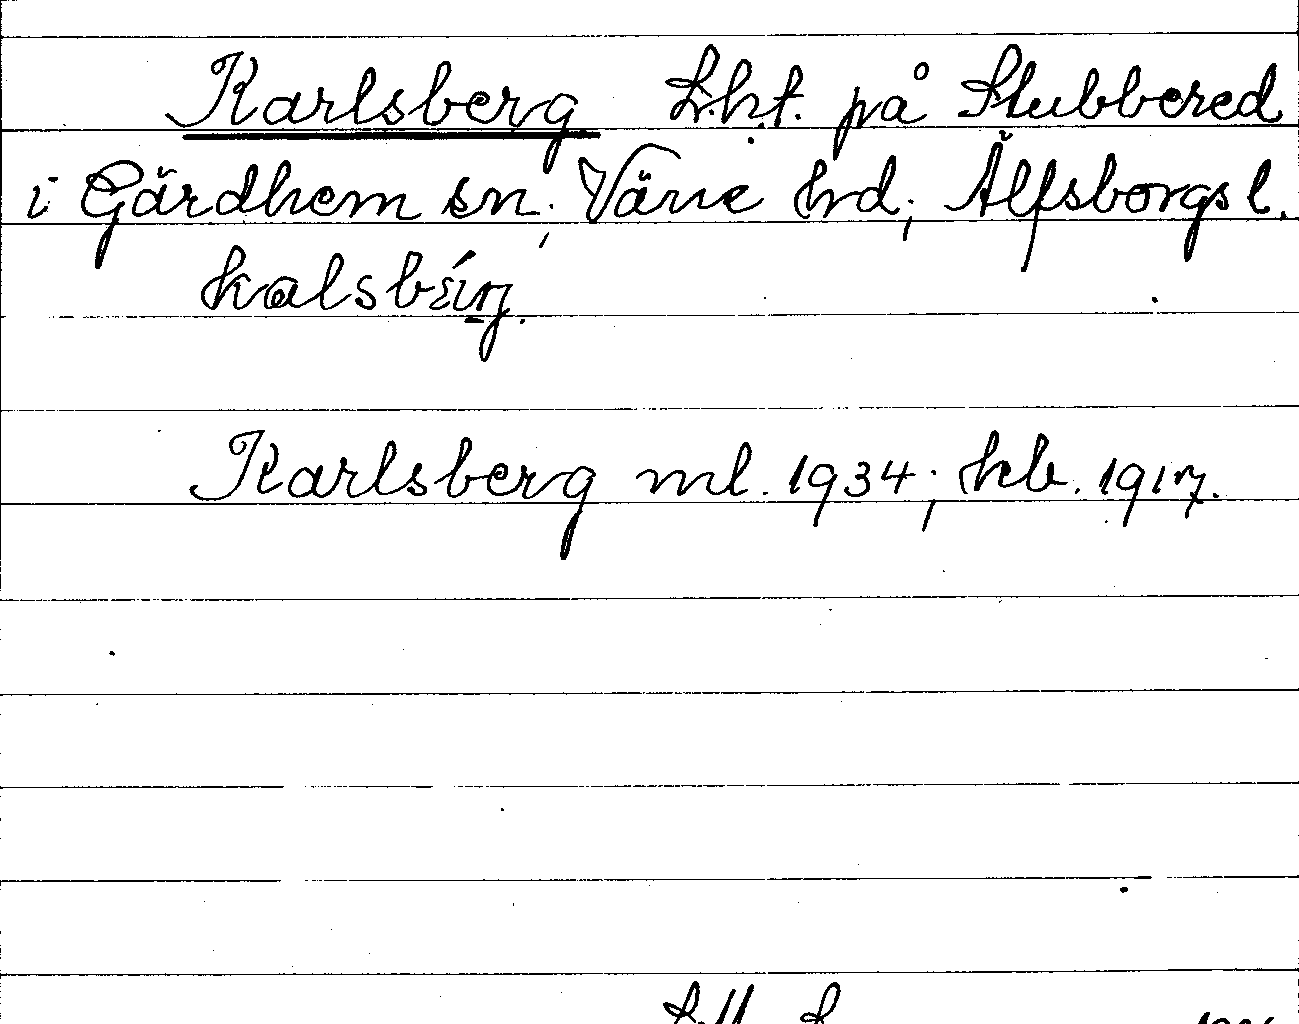 Karlsberg L.h.t. på Stubbered
i Gärdhem sn; Väne hd; Älfsborgs l.
kalsbǽrj.
Karlsberg ml. 1934; kb. 1917.